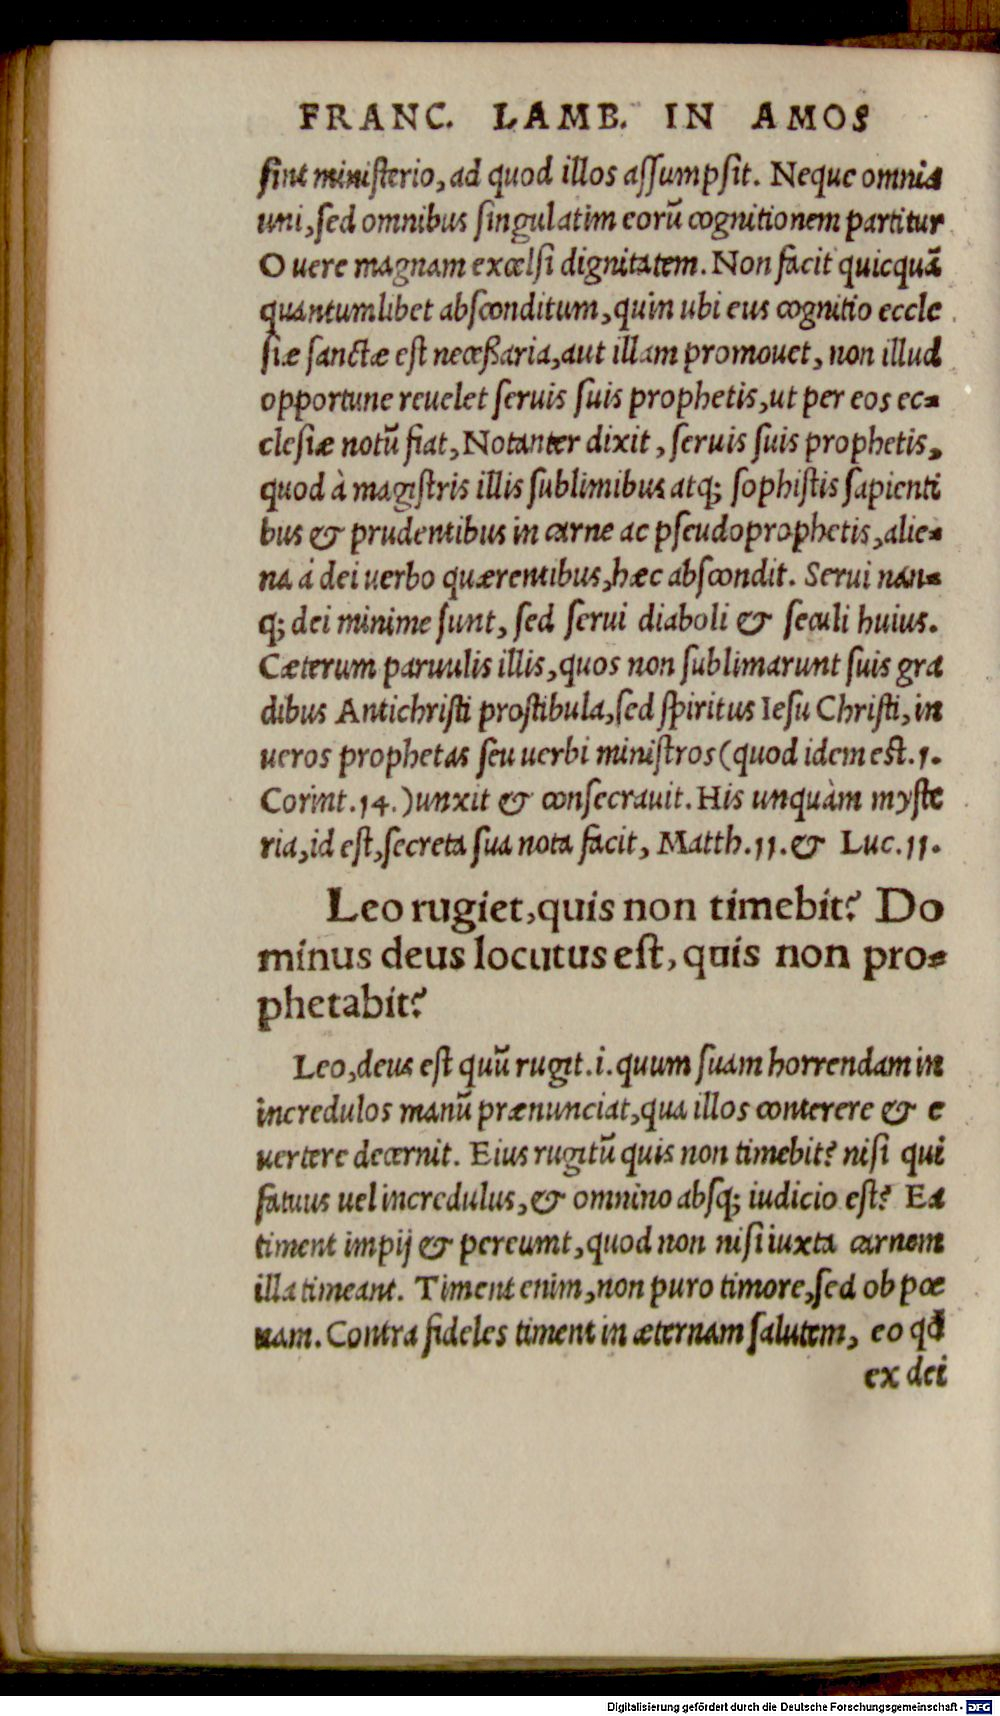 FRANC. LAMB. IN AMOS
sint ministerio, ad quod illos assumpsit. Neque omnia
uni, sed omnibus singulatim eorũ cognitionem partitur
O uere magnam excelsi dignitatem. Non facit quicquã
quantumlibet absconditum, quin ubi eus cognitio eccle
siæ sanctæ est necessaria, aut illam promouet, non illud
opportune reuelet seruis suis prophetis, ut per eos ec-
clesiæ notũ fiat, Notanter dixit, seruis suis prophetis,
quod à magistris illis sublimibus atq; sophistis sapienti
bus & prudentibus in carne ac pseudoprophetis, alie-
na à dei uerbo quærentibus, hæc abscondit. Serui nan-
q; dei minime sunt, sed serui diaboli & seculi huius.
Cæterum paruulis illis, quos non sublimarunt suis gra
dibus Antichristi prostibula, sed spiritus Iesu Christi, in
ueros prophetas seu uerbi ministros (quod idem est. 1.
Corint. 14.) unxit & consecrauit. His unquàm myste
ria, id est, secreta sua nota facit, Matth. 11. & Luc. 11.
Leo rugiet, quis non timebit? Do
minus deus locutus est, quis non pro-
phetabit?
Leo, deus est quũ rugit. i. quum suam horrendam in
incredulos manũ prænunciat, qua illos conterere & e
uertere decernit. Eius rugitũ quis non timebit? nisi qui
fatuus uel incredulus, & omnino absq; iudicio est? Ea
timent impij & pereunt, quod non nisi iuxta carnem
illa timeant. Timent enim, non puro timore, sed ob pœ
nam. Contra fideles timent in æternam salutem, eo qđ
ex dei
Digitalisierung gefördert durch die Deutsche Forschungsgemeinschaft - DFG